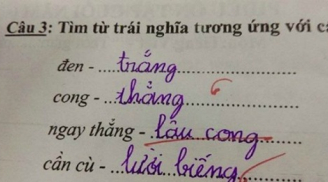 Câu 3: Tìm từ trái nghĩa tương ứng với
đen - ....trắng....................
cong - ...thẳng....................
ngay thẳng - .lâu cong........
cần cù - ...lười biếng..........